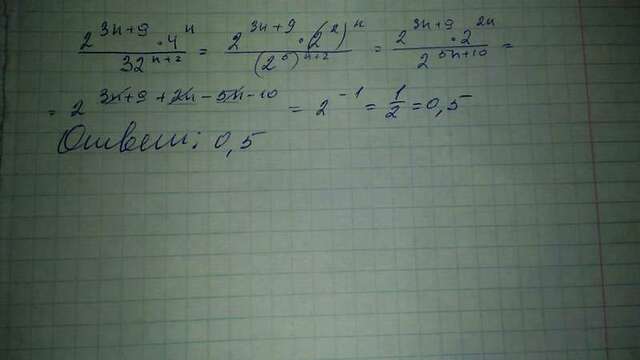 2^{3n+9} · 4^n / 32^{n+2} = 2^{3n+9} · (2^2)^n / (2^5)^{n+2} = 2^{3n+9} · 2^{2n} / 2^{5n+10} =
= 2^{3n+9+2n-5n-10} = 2^{-1} = 1/2 = 0,5
Ответ: 0,5